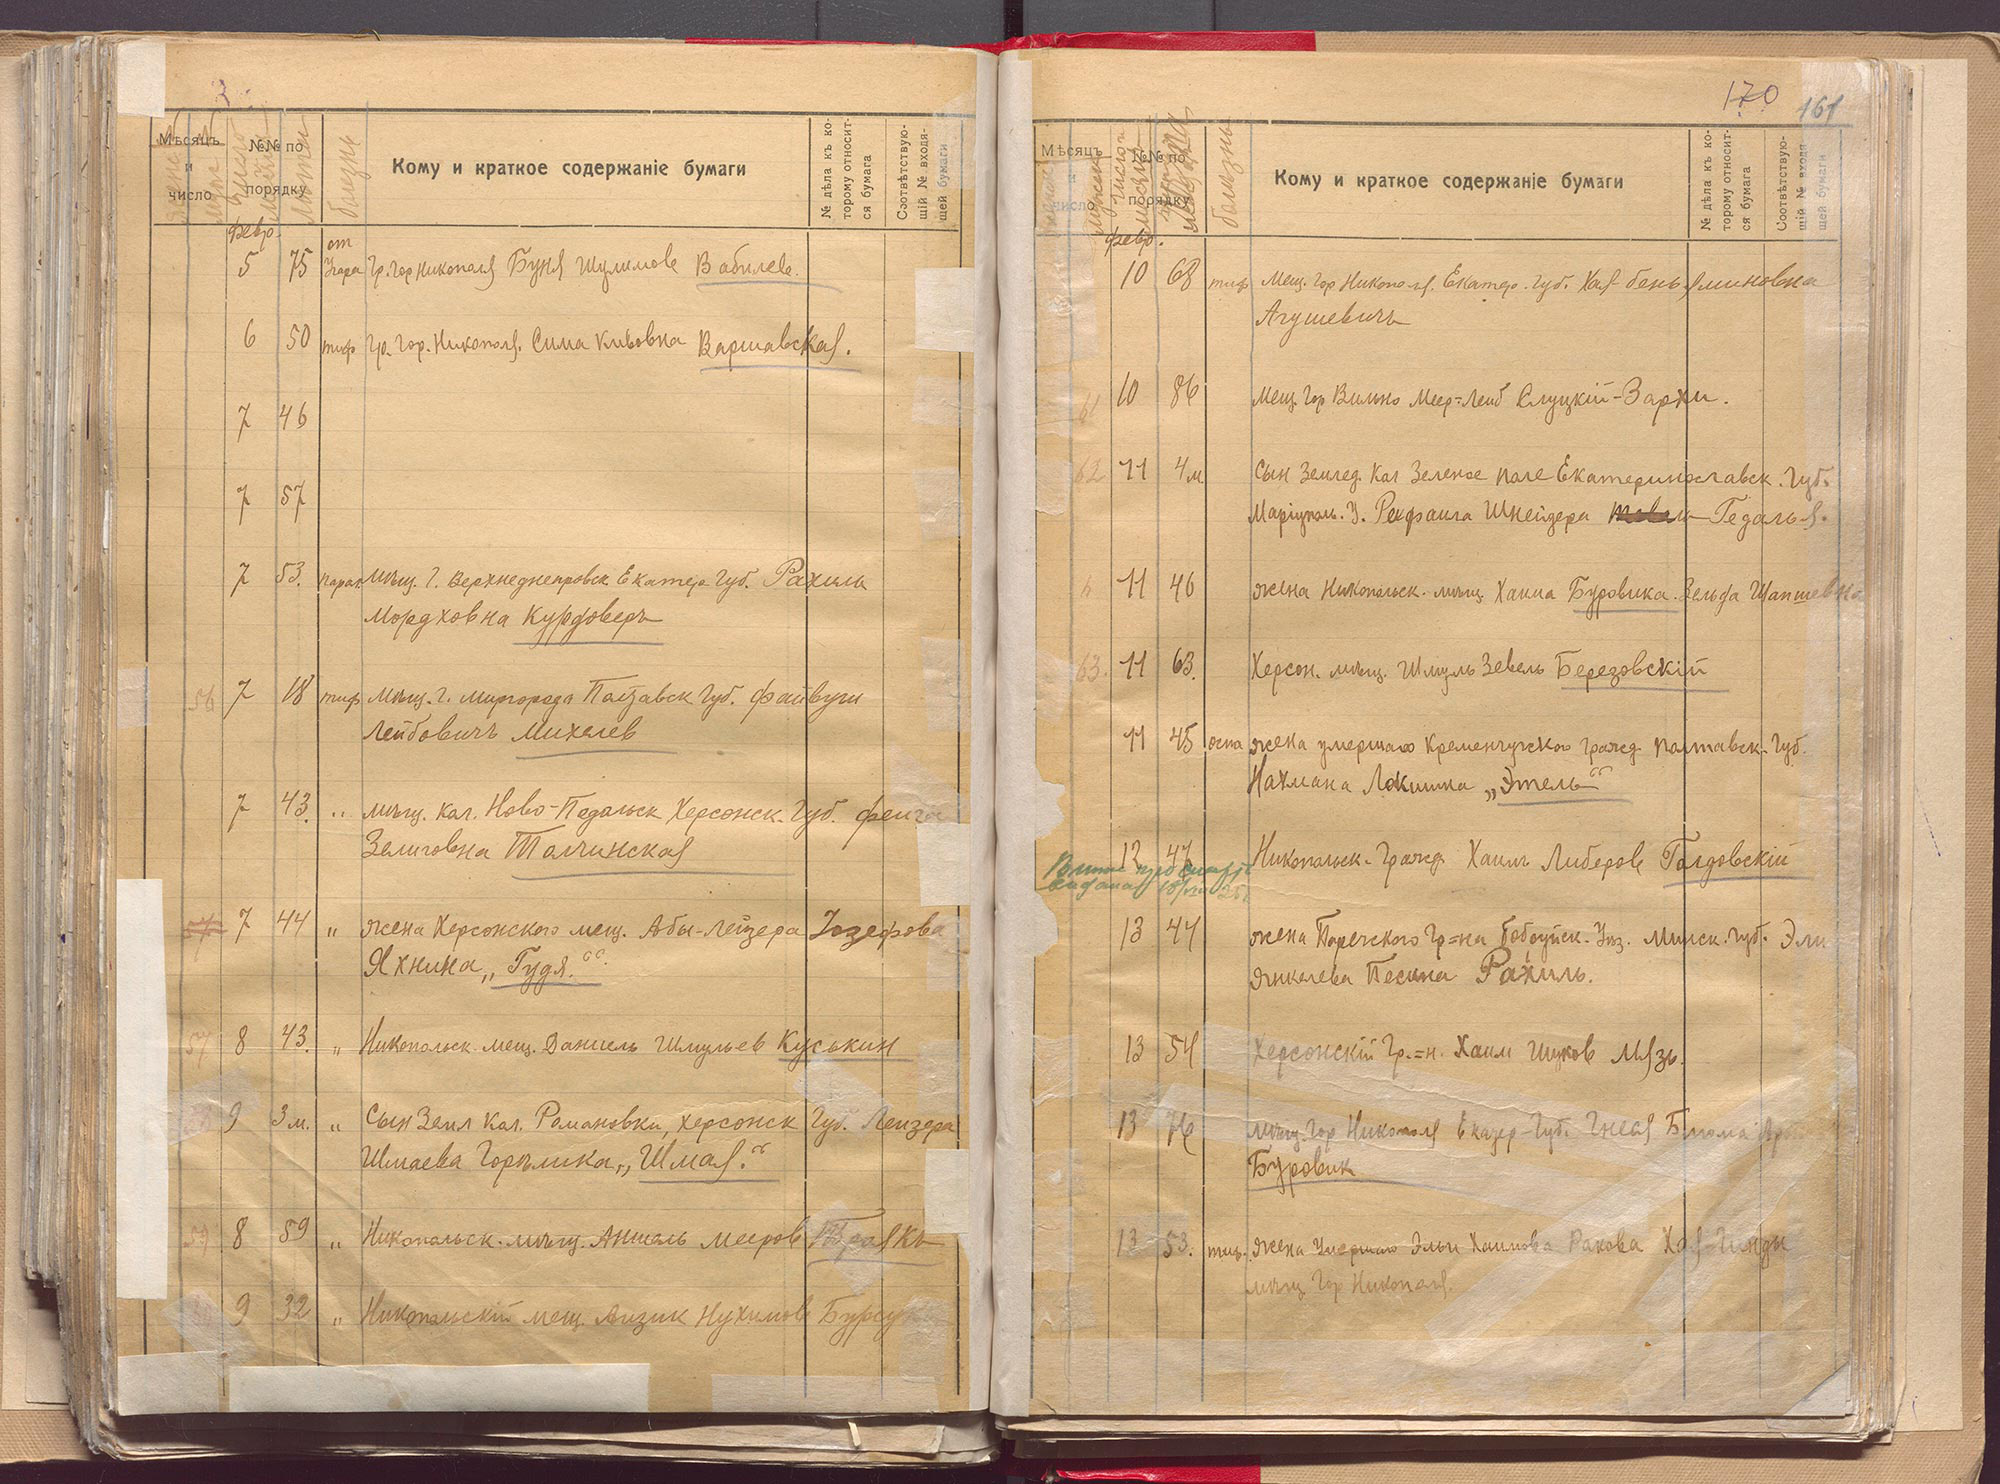 Мѣсяцъ и число
№№ по порядку
болезнь
Кому и краткое содержаніе бумаги
№ дѣла къ которому относится бумага
Соотвѣтствующій № входящей бумаги
февр.
5 75 от угара Гр. гор Никополя Буня Шулимове Вабилев.
6 50 тиф гр. гор. Никополя. Сима Кивовна Варшавская.
7 46
7 57
7 53. парал. мѣщ. г. Верхнеднепровск Екатер. губ. Рахиль
Мордховна Курдоверъ
56 7 18 тиф мѣщ. г. Миргорода Полтавск губ. Файвуш
Лейбовичъ Михелев
7 43. " мѣщ. кол. Ново-Подольск Херсонск. губ. Фейга
Зелиговна Толчинская
57 7 44 " жена Херсонского мещ. Абы-Лейзера Іозефова
Яхнина „Гудя."
57 8 43. " Никопольск. мещ. Даниель Шмульев Куськин
9 3 м. " Сын Земл кол. Романовки, Херсонск губ. Лейзера
Шмаева Горѣлика „Шмая."
59 8 59 " Никопольск. мѣщ. Аншель Мееров
9 32 " Никопольскій мещ. Аизик Нухимов
170 161
Мѣсяцъ и число
№№ по порядку
болезнь
Кому и краткое содержаніе бумаги
№ дѣла къ которому относится бумага
Соотвѣтствующій № входящей бумаги
февр.
10 68 тиф мещ. гор Никополя. Екатер. губ. Хая беньяминовна
Агушевичъ
61 10 86 мещ. гор Вильно Меер=Лейб Слуцкій-Зархи.
62 11 4 м Сын землед. кол Зеленое поле Екатеринославск. губ.
Маріуполь. у. Рафаила Шнейдера Гедалья.
11 46 жена Никопольск. мѣщ. Хаима Буровика. Зельда Шапшевна
63. 11 63. Херсон. мѣщ. Шмуль Зевель Березовскій
11 45 оспа жена умершаго Кременчугского гражд. Полтавск. губ.
Нахмана Локшина „Этель"
12 47 Никопольск. гражд. Хаимъ Либеров Голдовскій
13 44 жена Поречского гр=на Бобруйск. уез. Минск. губ. Эли
Янкелева Песина Рахиль.
13 54 Херсонскій гр.=н. Хаим Ицков Мязь.
13 76 мѣщ. гор Никополя Екатер. губ. Гнеся Блюма
Буровик
13 53. тиф. жена умершаго Эльи Хаимова Ракова Хая-Гинды
мѣщ. гор Никополя.